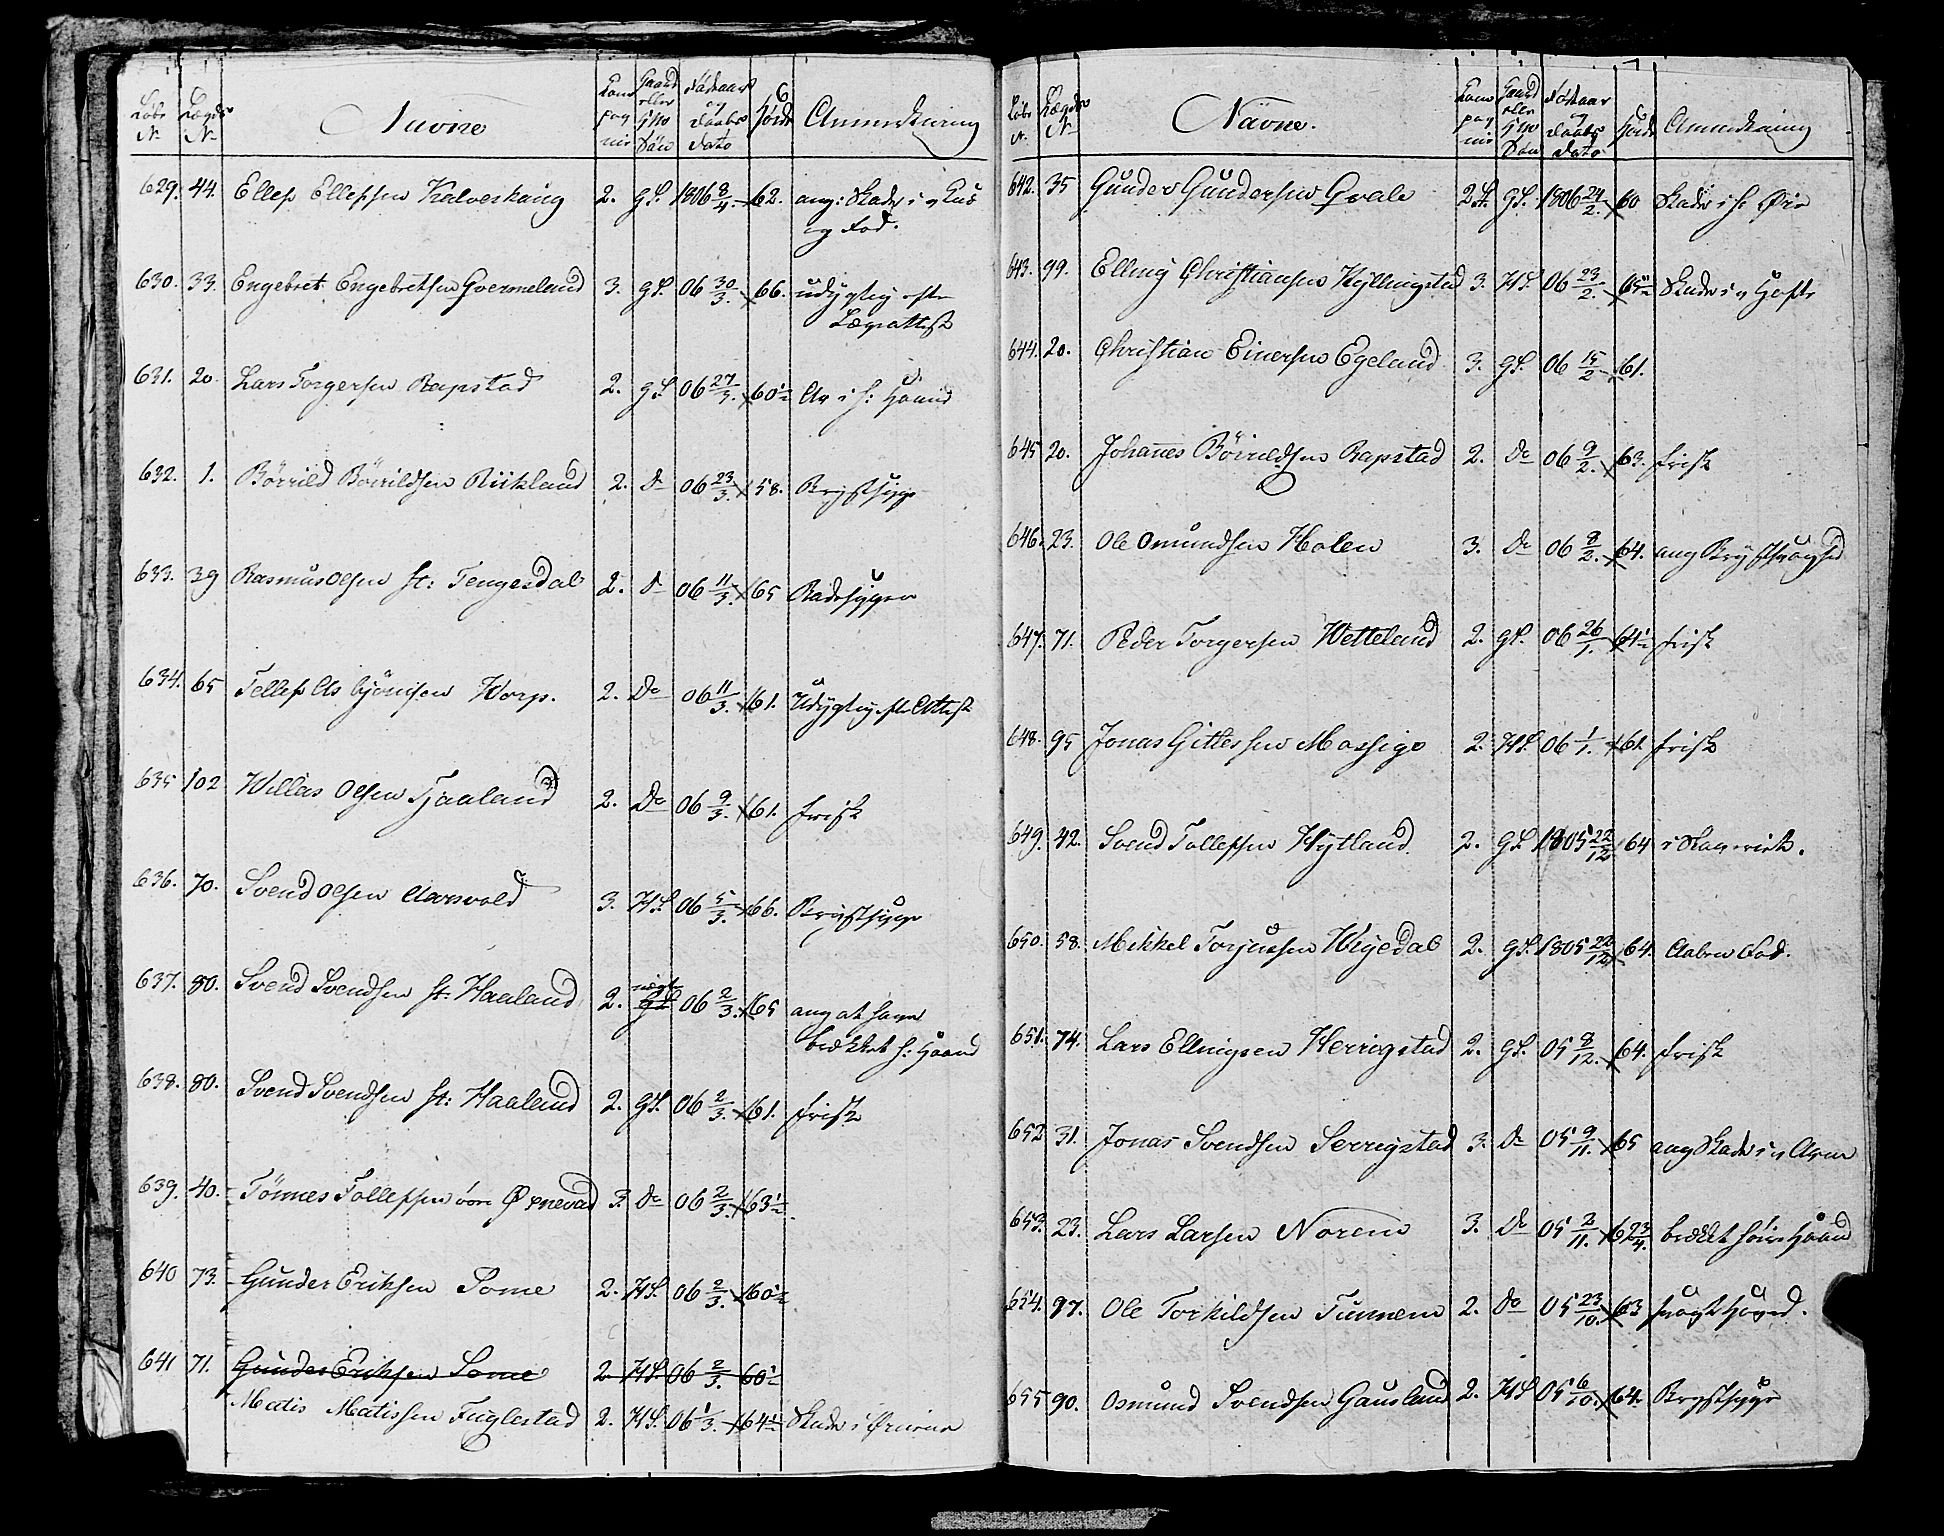 Løbe N° Lægds N° Navne Kompagnie Gaard eller Huus Søn Fødaar og Daabs Dato Høide Anmerkning
629. 44. Ellef Ellefsen Kalveskaug 2. g S. 1806 8/4. 62. ang: Skade i v Knæ
og Fod.
630. 33. Engebret Engebretsen Gvermeland 3. gS. 06 30/3. 66. udygtig efter
Lægeattest
631. 20. Lars Torgersen Rapstad 2. gS 06 27/3. 60½ Ar i h: Haand
632. 1. Børrild Børrildsen Birkland 2. D 06 23/3. 58. Brystsyge
633. 39 Rasmus Olsen st: Tengesdal 2. D 06 11/3. 65 Radesygen
634. 65 Tellef Asbjørnsen Worp. 2. Do 06 11/3. 61. Udygtig eft Attest
635 102 Willas Olsen Tjaaland 2. Do 06 9/3. 61. frisk
636. 70. Svend Olsen Aarsvold 3. HS. 06 5/3. 66. Brystsyge
637. 80. Svend Svendsen st: Haaland 2. 06 2/3. 65 ang at have
brækket h: Haand
638. 80. Svend Svendsen st: Haaland 2. gS. 06 2/3. 61. frisk
639. 40. Tønnes Tollefsen øvre Øxnevad 3. Do 06 2/3. 63½.
640 73. Gunder Eriksen Some 2. HS. 06 2/3. 60½
641 71. Gunder Eriksen Some 2. HS. 06 2/3. 60½
Matis Matissen Fuglestad 2. HS. 06 1/3. 64½ Skade i Ørene
Løbe N. Lægds N° Navne. Kompagnie Gaard eller Huus Søn Fødaar og Daabs Dato Høide Anmerkning
642. 35 Gunder Gundersen Qvale 2 gS. 1806 24/2. 60 Skade i h: Øie
643. 99. Elling Christiansen Kyllingstad 3. HS. 06 23/2. 65½ Skade i v Hofte
644. 20. Christian Einersen Egeland 3. gS. 06 15/2 61.
645 20. Johannes Børrildsen Rapstad 2. Do 06 9/2. 63. frisk
646. 23. Ole Omundsen Holen 3. Do 06 8/2. 64. ang Brystsvaghed
647. 71. Peder Torgersen Wetteland 2. gS. 06 26/1. 64½ frisk
648. 95 Jonas Gitlesen Mossige 2. HS. 06 1/1. 61 frisk
649. 42. Svend Tollefsen Hytland. 2. gS 1805 22/12 64
650. 58. Mikkel Torjussen Wigedal 2. gS. 1805 22/12 64. Aaben Fod.
651. 74. Lars Ellingsen Herrigstad 2. gS. 05 8/12. 64. frisk
652 31. Jonas Svendsen Serrigstad 3. Do 05 9/11. 65 ang Skade i v Arm
653. 23. Lars Larsen Norem 3. Do 05 2/11. 62¾. brækket høire Haand
654. 97. Ole Torkildsen Tunnem 2. Do 05 23/10. 63 svagt Hoved.
655 90. Osmund Svendsen Gausland 2. HS 05 6/10. 64. Brystsyge